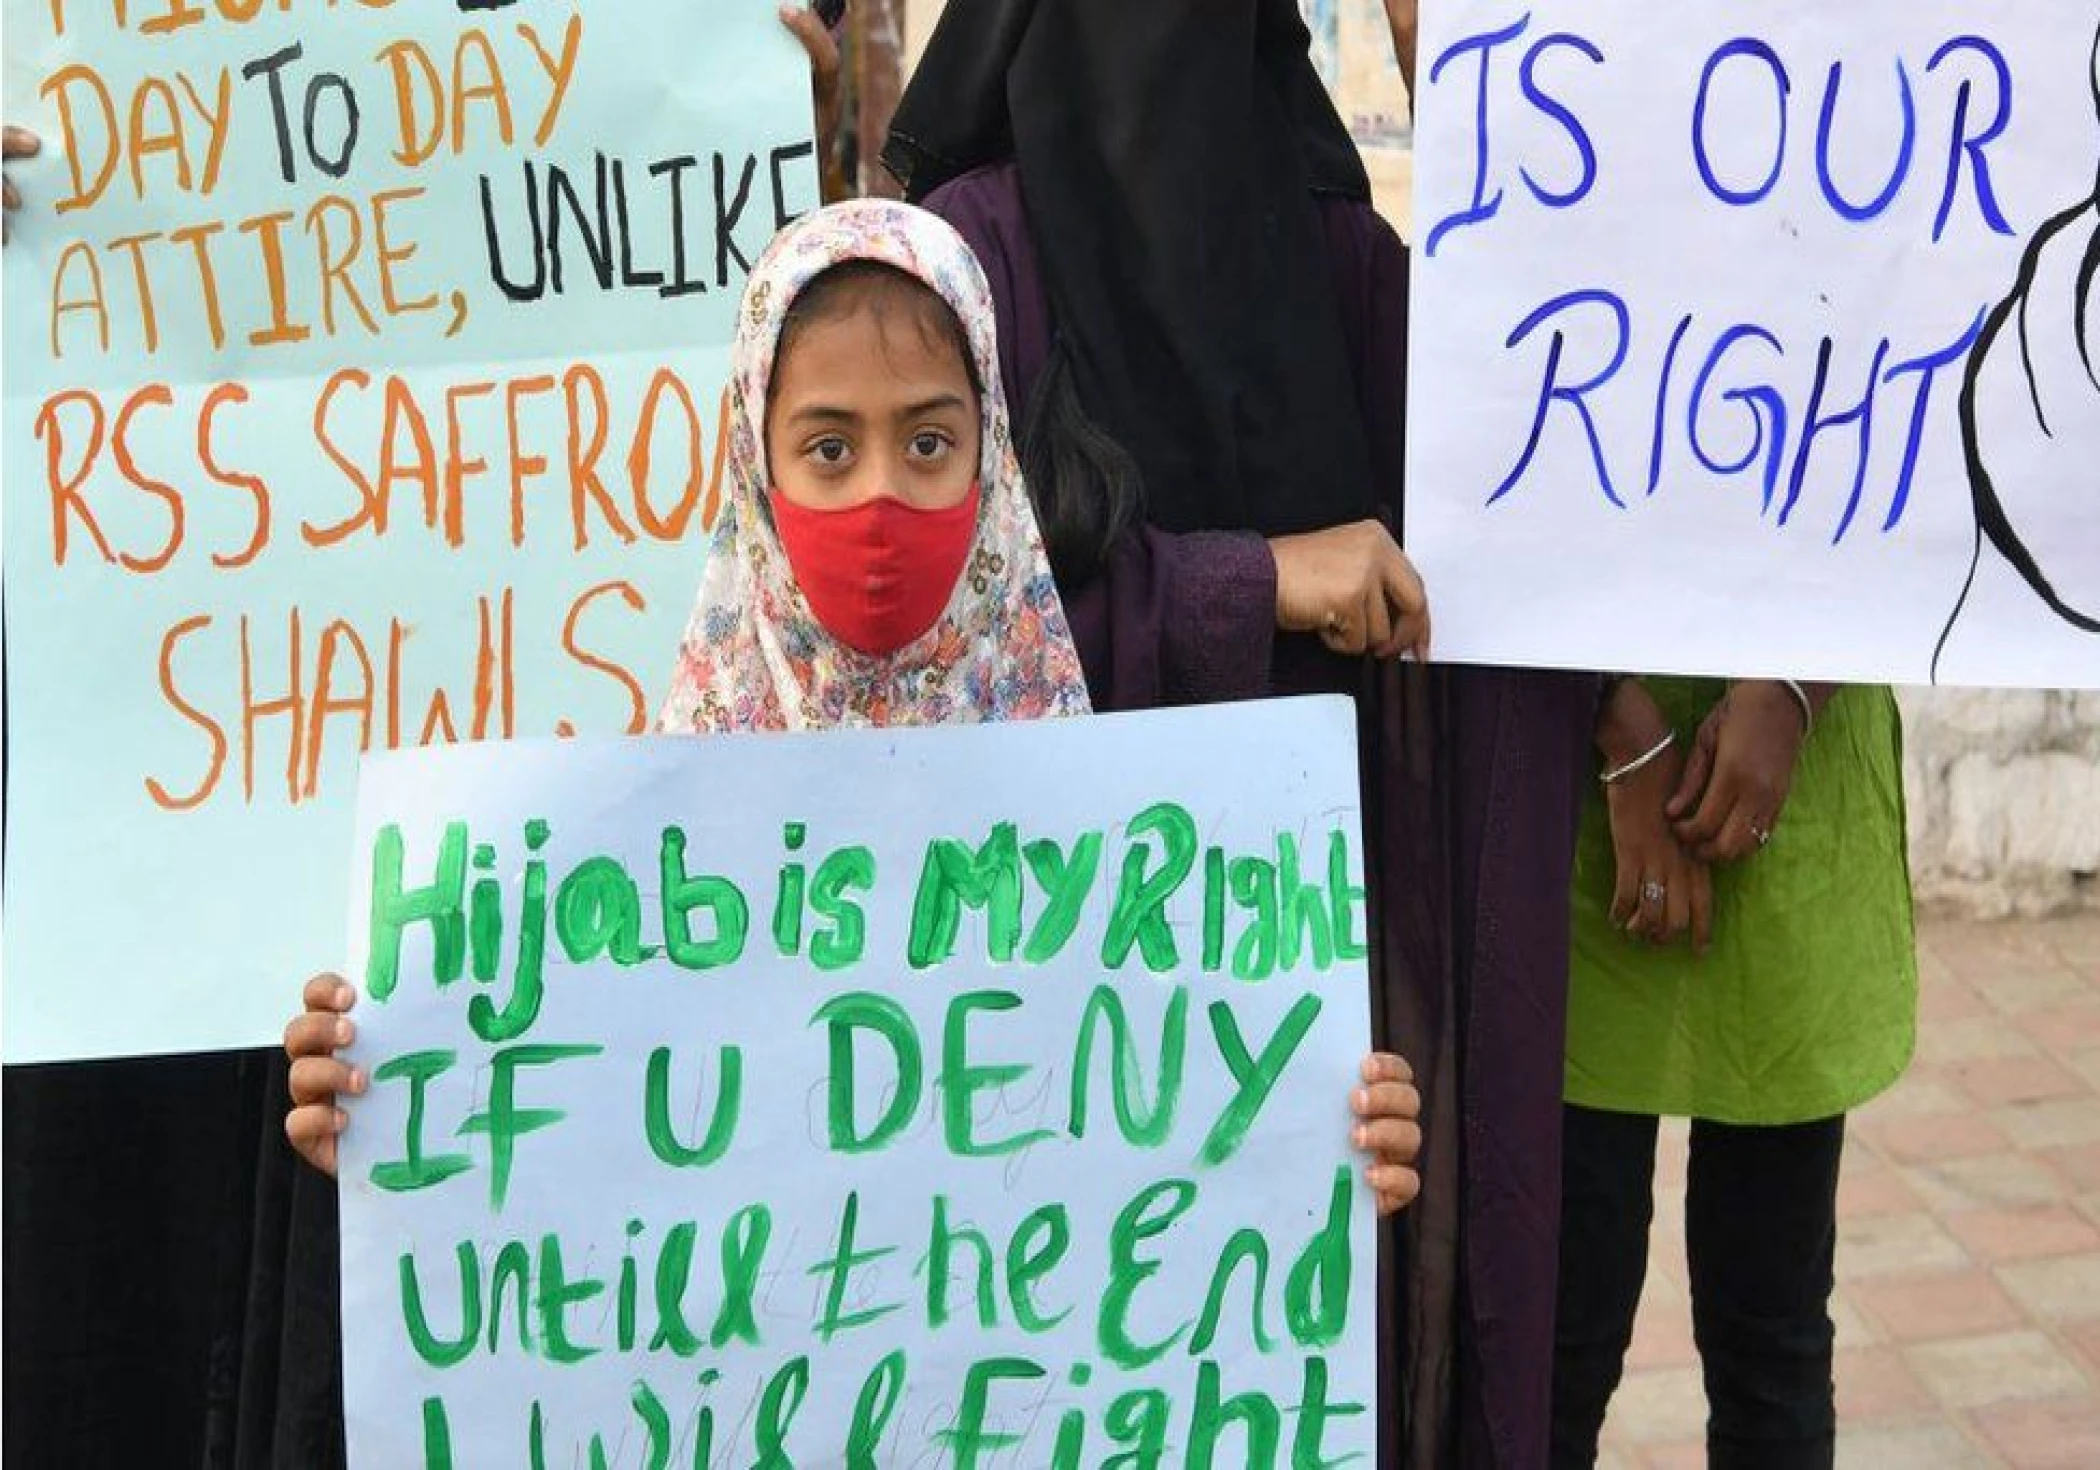 DAY TO DAY
ATTIRE, UNLIKE
RSS SAFFRON
SHAWLS
IS OUR
RIGHT
Hijab is My Right
IF U DENY
untill the End
I will Fight